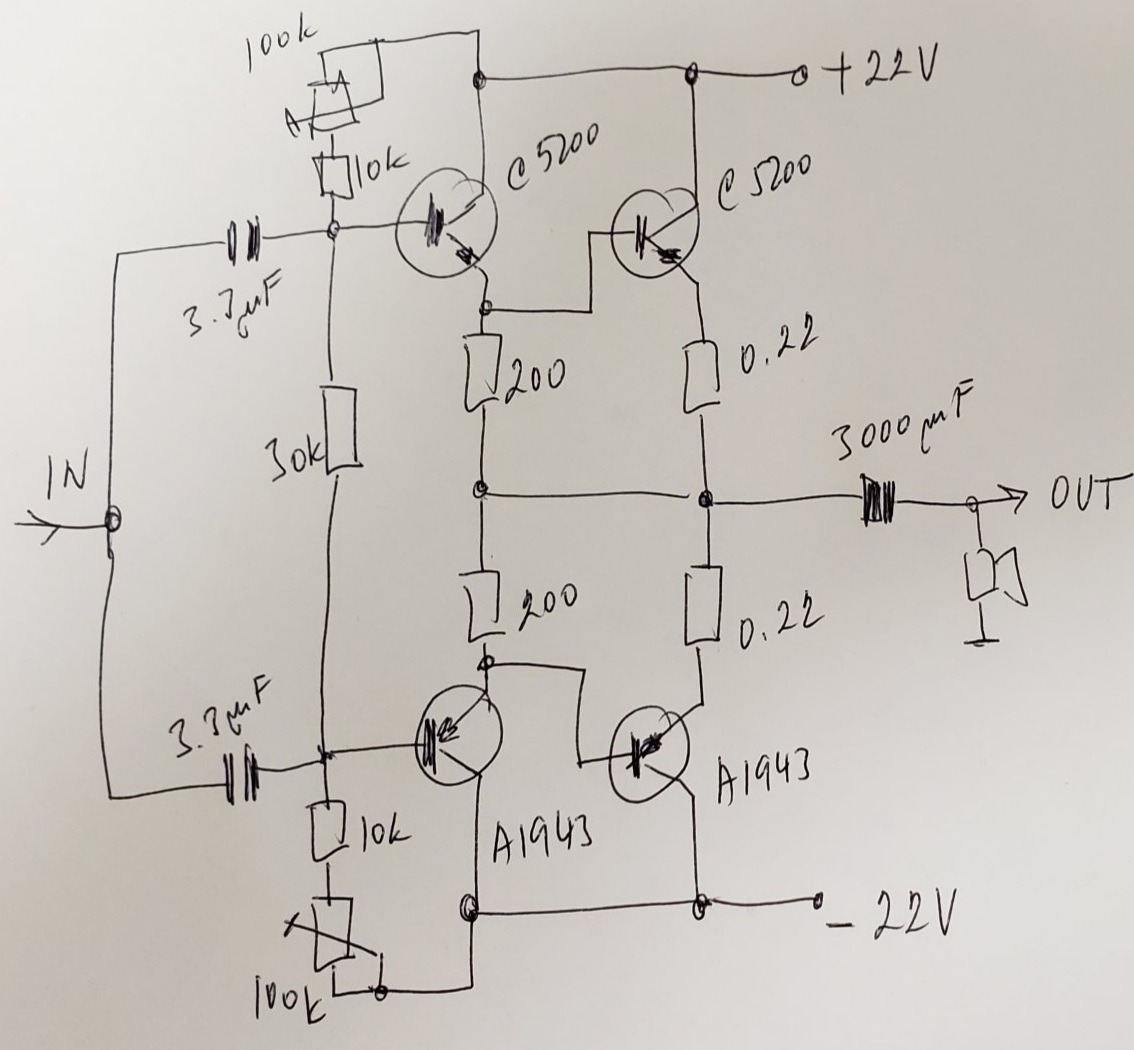 100k
+22V
10k
C5200
C5200
3.3µF
200
0.22
30k
3000µF
IN
OUT
200
0.22
3.3µF
A1943
10k
A1943
-22V
100k